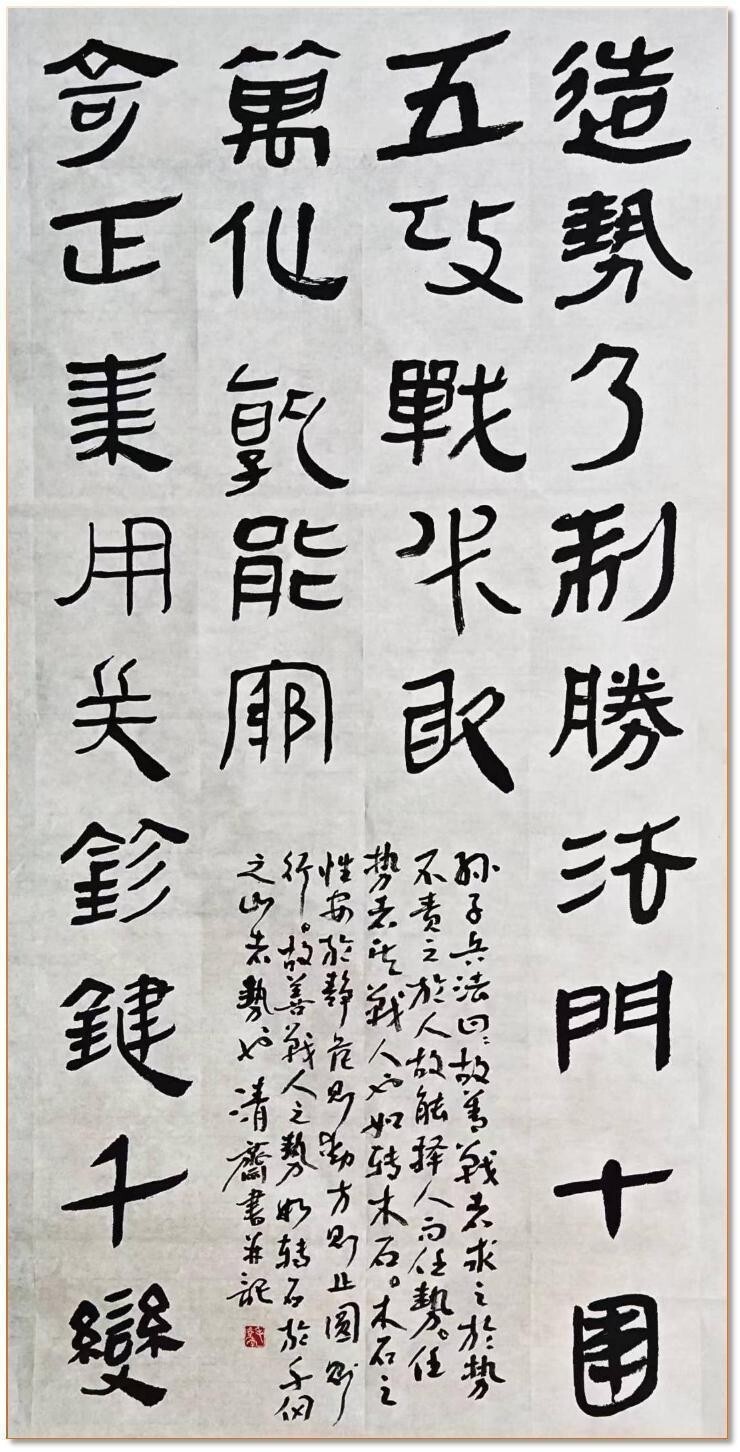 造勢乃制勝法門十圍
五攻戰取
奇正秉用鈐鍵千變
萬化孰能窮
孙子兵法曰：故善戰者求之於势
不责之於人故能择人而任勢。任
势者其戰人也如转木石。木石之
性安於靜危则動方则止圓则
行。故善戰人之勢如转石於千仞
之山者勢也 清齋書并記